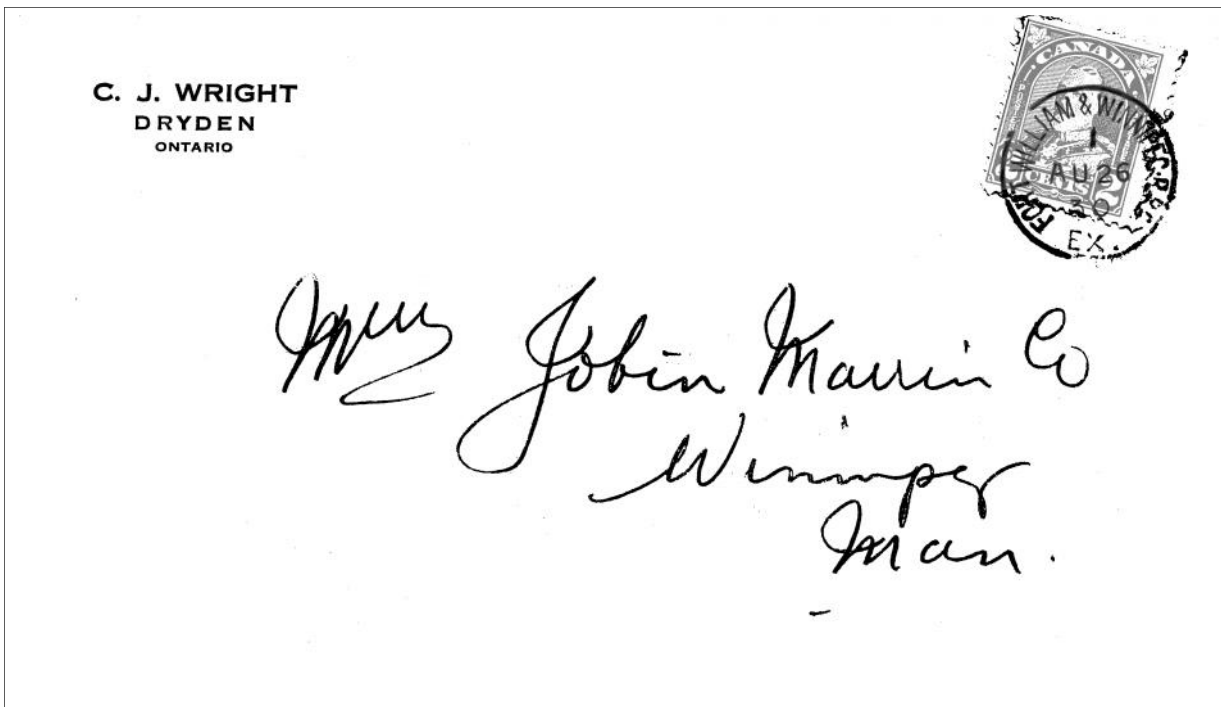 C. J. WRIGHT
DRYDEN
ONTARIO
CANADA
CENTS
FORT WILLIAM & WINNIPEG. R.P.O.
1
AU 26
30
EX.
Messrs Jobin Marrin Co
Winnipeg
Man.